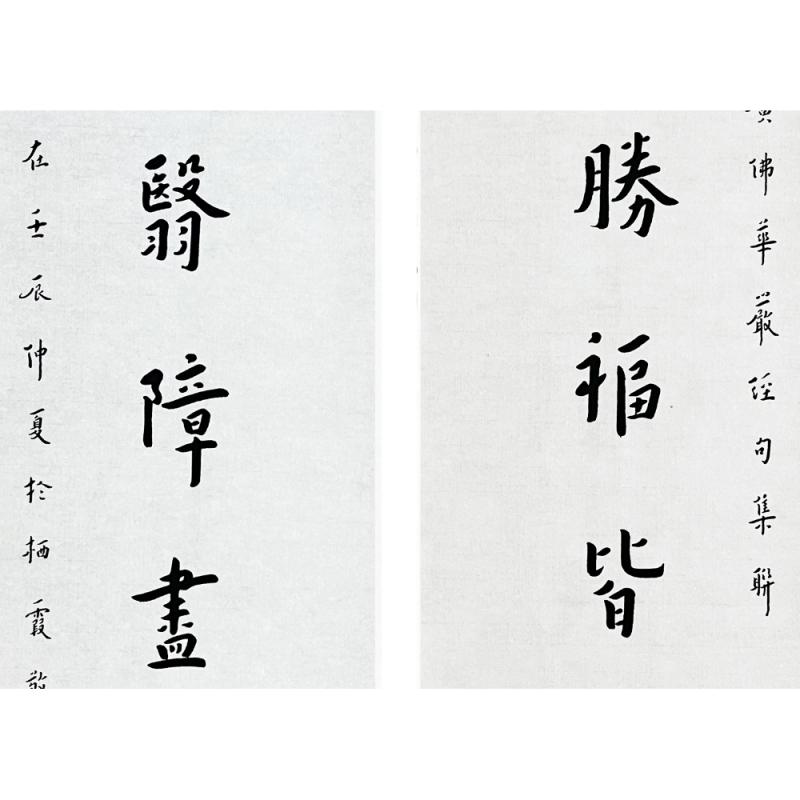 佛華嚴經句集聯
勝福皆
翳障盡
在壬辰仲夏於栖霞